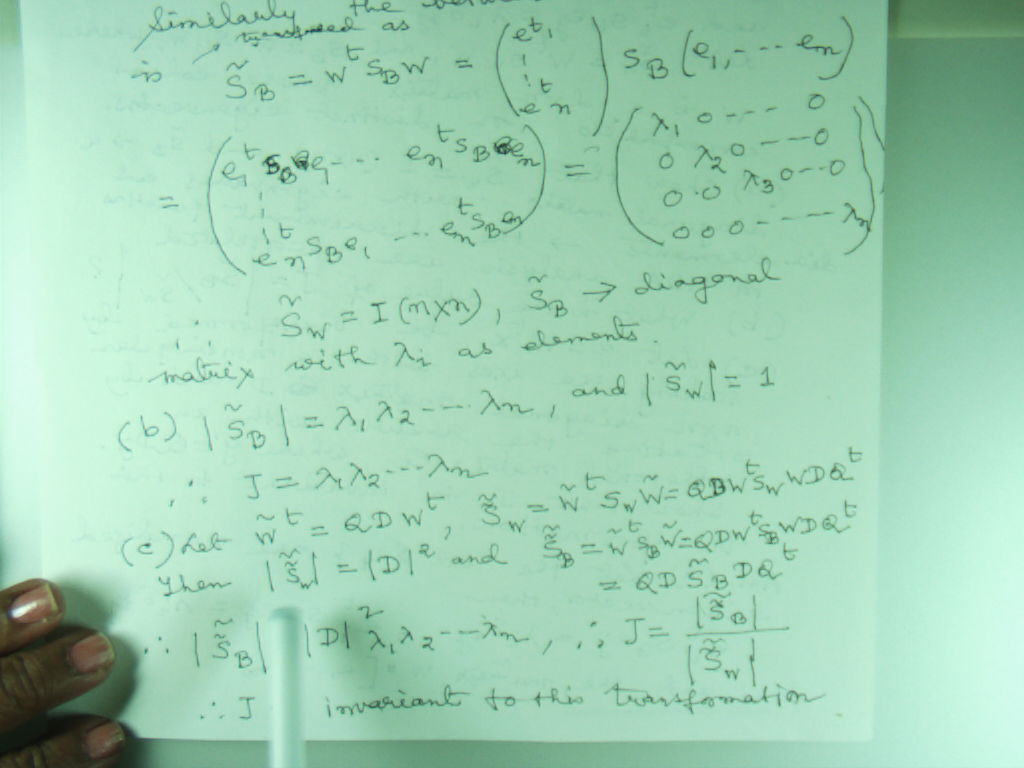 Similarly the between
transformed as
is S̃_B = W^t S_B W = (e^t_1 ⋮ e^t_n) S_B (e_1, --- e_n)
= (e_1^t S_B e_1 --- e_n^t S_B e_n ⋮ e_n^t S_B e_1 --- e_n^t S_B e_n) = (λ_1 0 --- 0
0 λ_2 0 --- 0
0 0 λ_3 0 -- 0
0 0 0 ---- λ_n)
∴ S̃_W = I (n×n), S̃_B → diagonal
matrix with λ_i as elements.
(b) |S̃_B| = λ_1 λ_2 --- λ_n, and |S̃_W| = 1
∴ J = λ_1 λ_2 --- λ_n
(c) Let W̃^t = QDW^t, S̃̃_W = W̃^t S_W W̃ = QDW^t S_W WDQ^t
Then |S̃̃_W| = |D|^2 and S̃̃_B = W̃^t S_B W̃ = QDW^t S_B WDQ^t
= QD S̃_B DQ^t
∴ |S̃̃_B| |D|^2 λ_1 λ_2 --- λ_n, ∴ J = |S̃̃_B| / |S̃̃_W|
∴ J invariant to this transformation